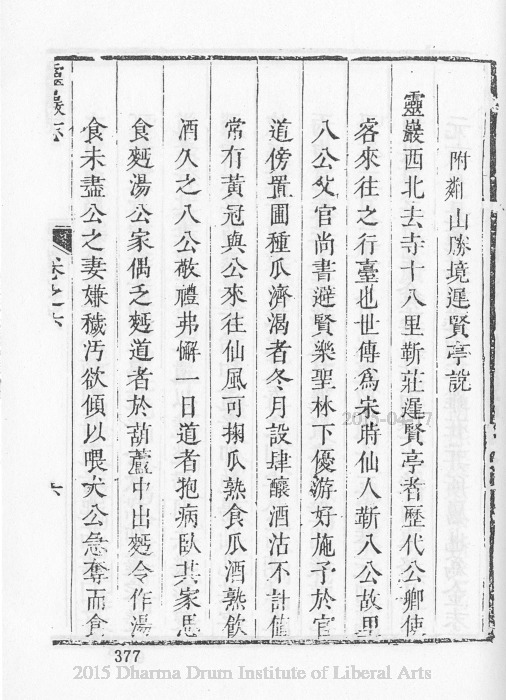 附鄰山勝境遲賢亭說
靈巖西北去寺十八里靳莊遲賢亭者歷代公卿使
客來往之行臺也世傳為宋時仙人靳八公故里
八公父官尚書避賢樂聖林下優游好施予於官
道傍置圃種瓜濟渴者冬月設肆釀酒沽不計值
常有黃冠與公來往仙風可掬瓜熟食瓜酒熟飲
酒久之八公敬禮弗懈一日道者抱病臥其家思
食麫湯公家偶乏麫道者於葫蘆中出麫令作湯
食未盡公之妻嫌穢汚欲傾以喂犬公急奪而食
靈巖志
卷之六
六
377
2015 Dharma Drum Institute of Liberal Arts